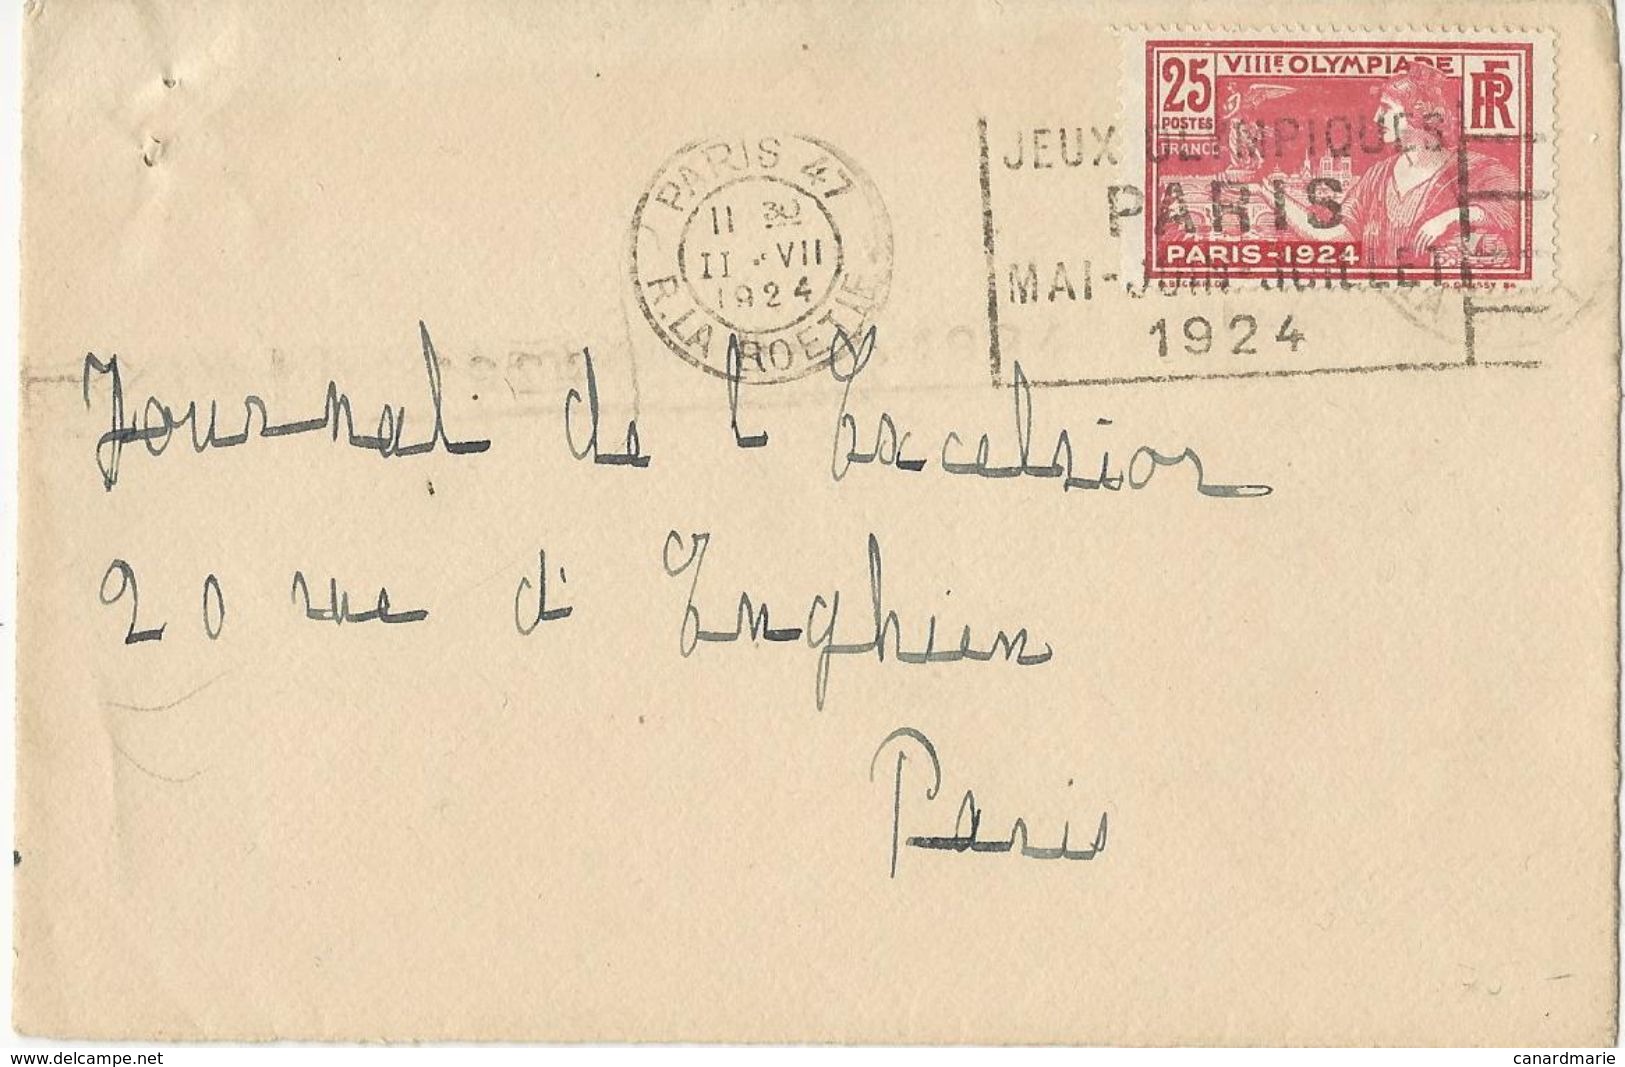 25
POSTES
FRANCE
VIIIE OLYMPIADE
RF
PARIS-1924
PARIS 47
11 30
II · VII
1924
R. LA BOETIE
JEUX OLYMPIQUES
PARIS
MAI-JUIN-JUILLET
1924
Journal de l'Excelsior
20 rue d'Enghien
Paris
www.delcampe.net
canardmarie